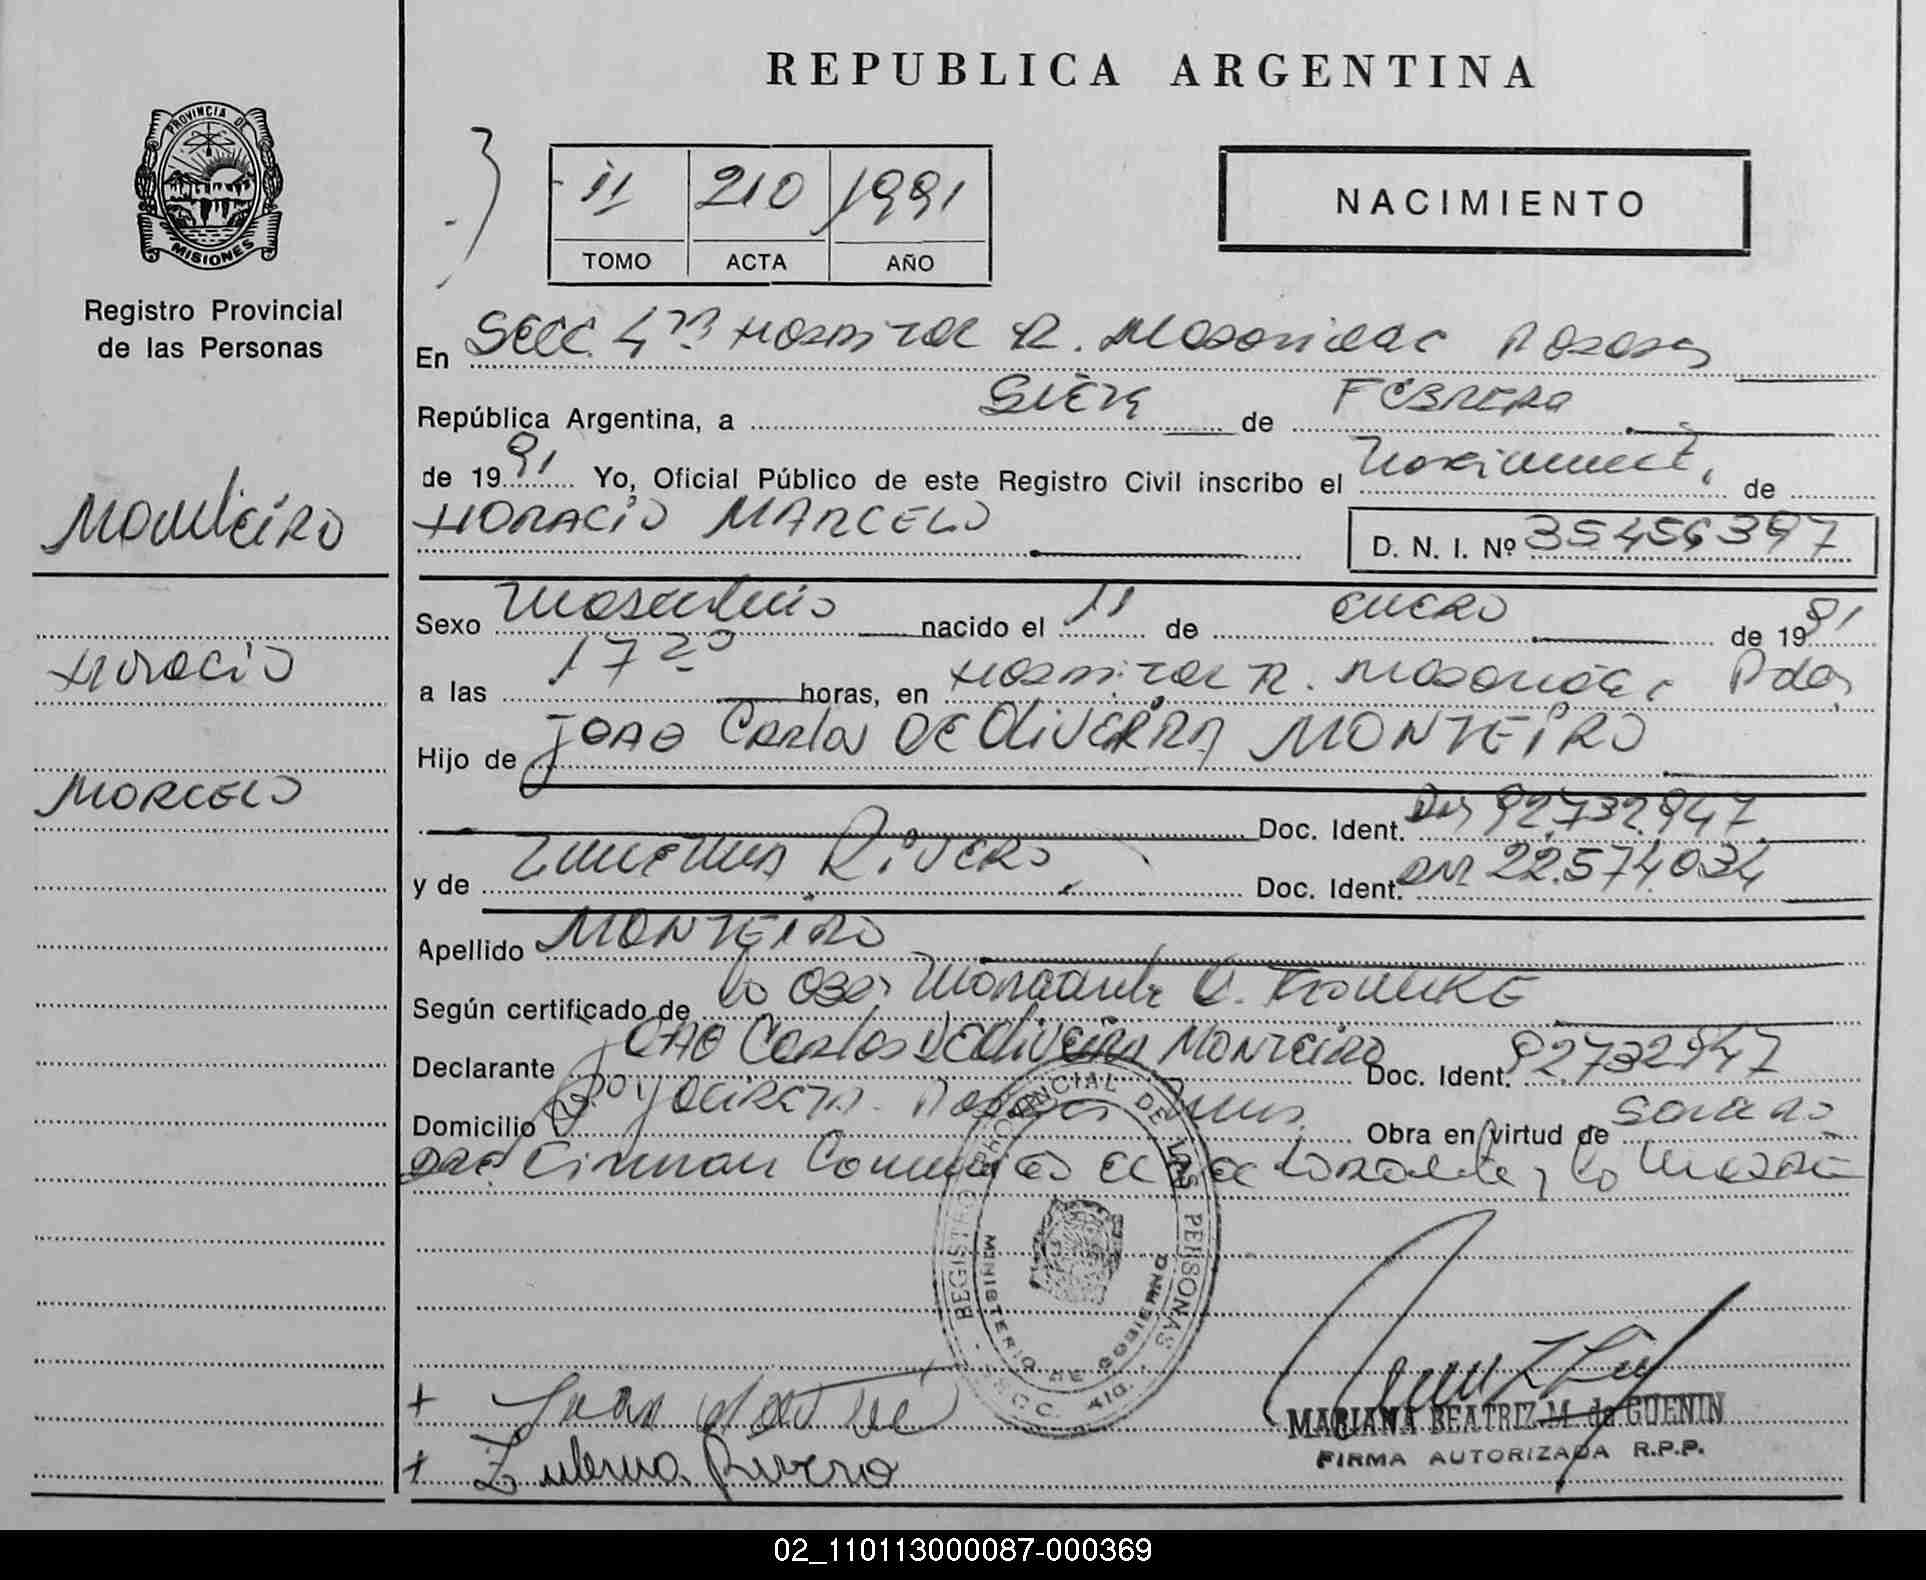 REPUBLICA ARGENTINA
PROVINCIA DE
MISIONES
Registro Provincial
de las Personas
11 210 1991
TOMO ACTA AÑO
NACIMIENTO
En Secc. 4ta Hospital R. Madariaga Posadas
República Argentina, a siete de Febrero
de 1991 Yo, Oficial Público de este Registro Civil inscribo el Nacimiento de
HORACIO MARCELO D. N. I. Nº 35456397
Monteiro
Horacio
Marcelo
Sexo Masculino nacido el 11 de enero de 1991
a las 17 horas, en Hospital R. Madariaga Pdas
Hijo de JOAO Carlos DE OLIVEIRA MONTEIRO
Doc. Ident. DNI 92.732.947
y de Rivero Doc. Ident. DNI 22.574.034
Apellido MONTEIRO
Según certificado de la Obst.
Declarante JOAO Carlos DE OLIVEIRA MONTEIRO Doc. Ident. 92732947
Domicilio Posadas Mnes. Obra en virtud de
Firman la madre
REGISTRO PROVINCIAL DE LAS PERSONAS
MINISTERIO DE GOBIERNO
SECC. 4ta.
+
+ Zulema Rivero
MARIANA BEATRIZ M. de GUENIN
FIRMA AUTORIZADA R.P.P.
02_110113000087-000369